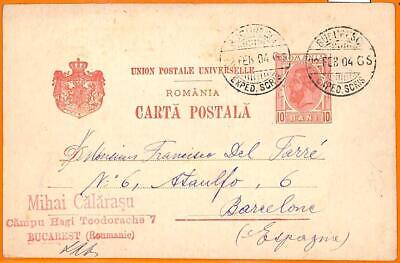 22 FEB 04 GS
EXPED. SCRIS.
FEB 04 GS
EXPED. SCRIS.
UNION POSTALE UNIVERSELLE
ROMÂNIA
CARTĂ POSTALĂ
10 BANI 10
Monsieur Francisco Del Tarré
N:o 6, Ataulfo, 6
Barcelone
(Espagne)
Mihai Călărașu
Câmpu Hagi Teodorache 7
BUCAREST (Roumanie)